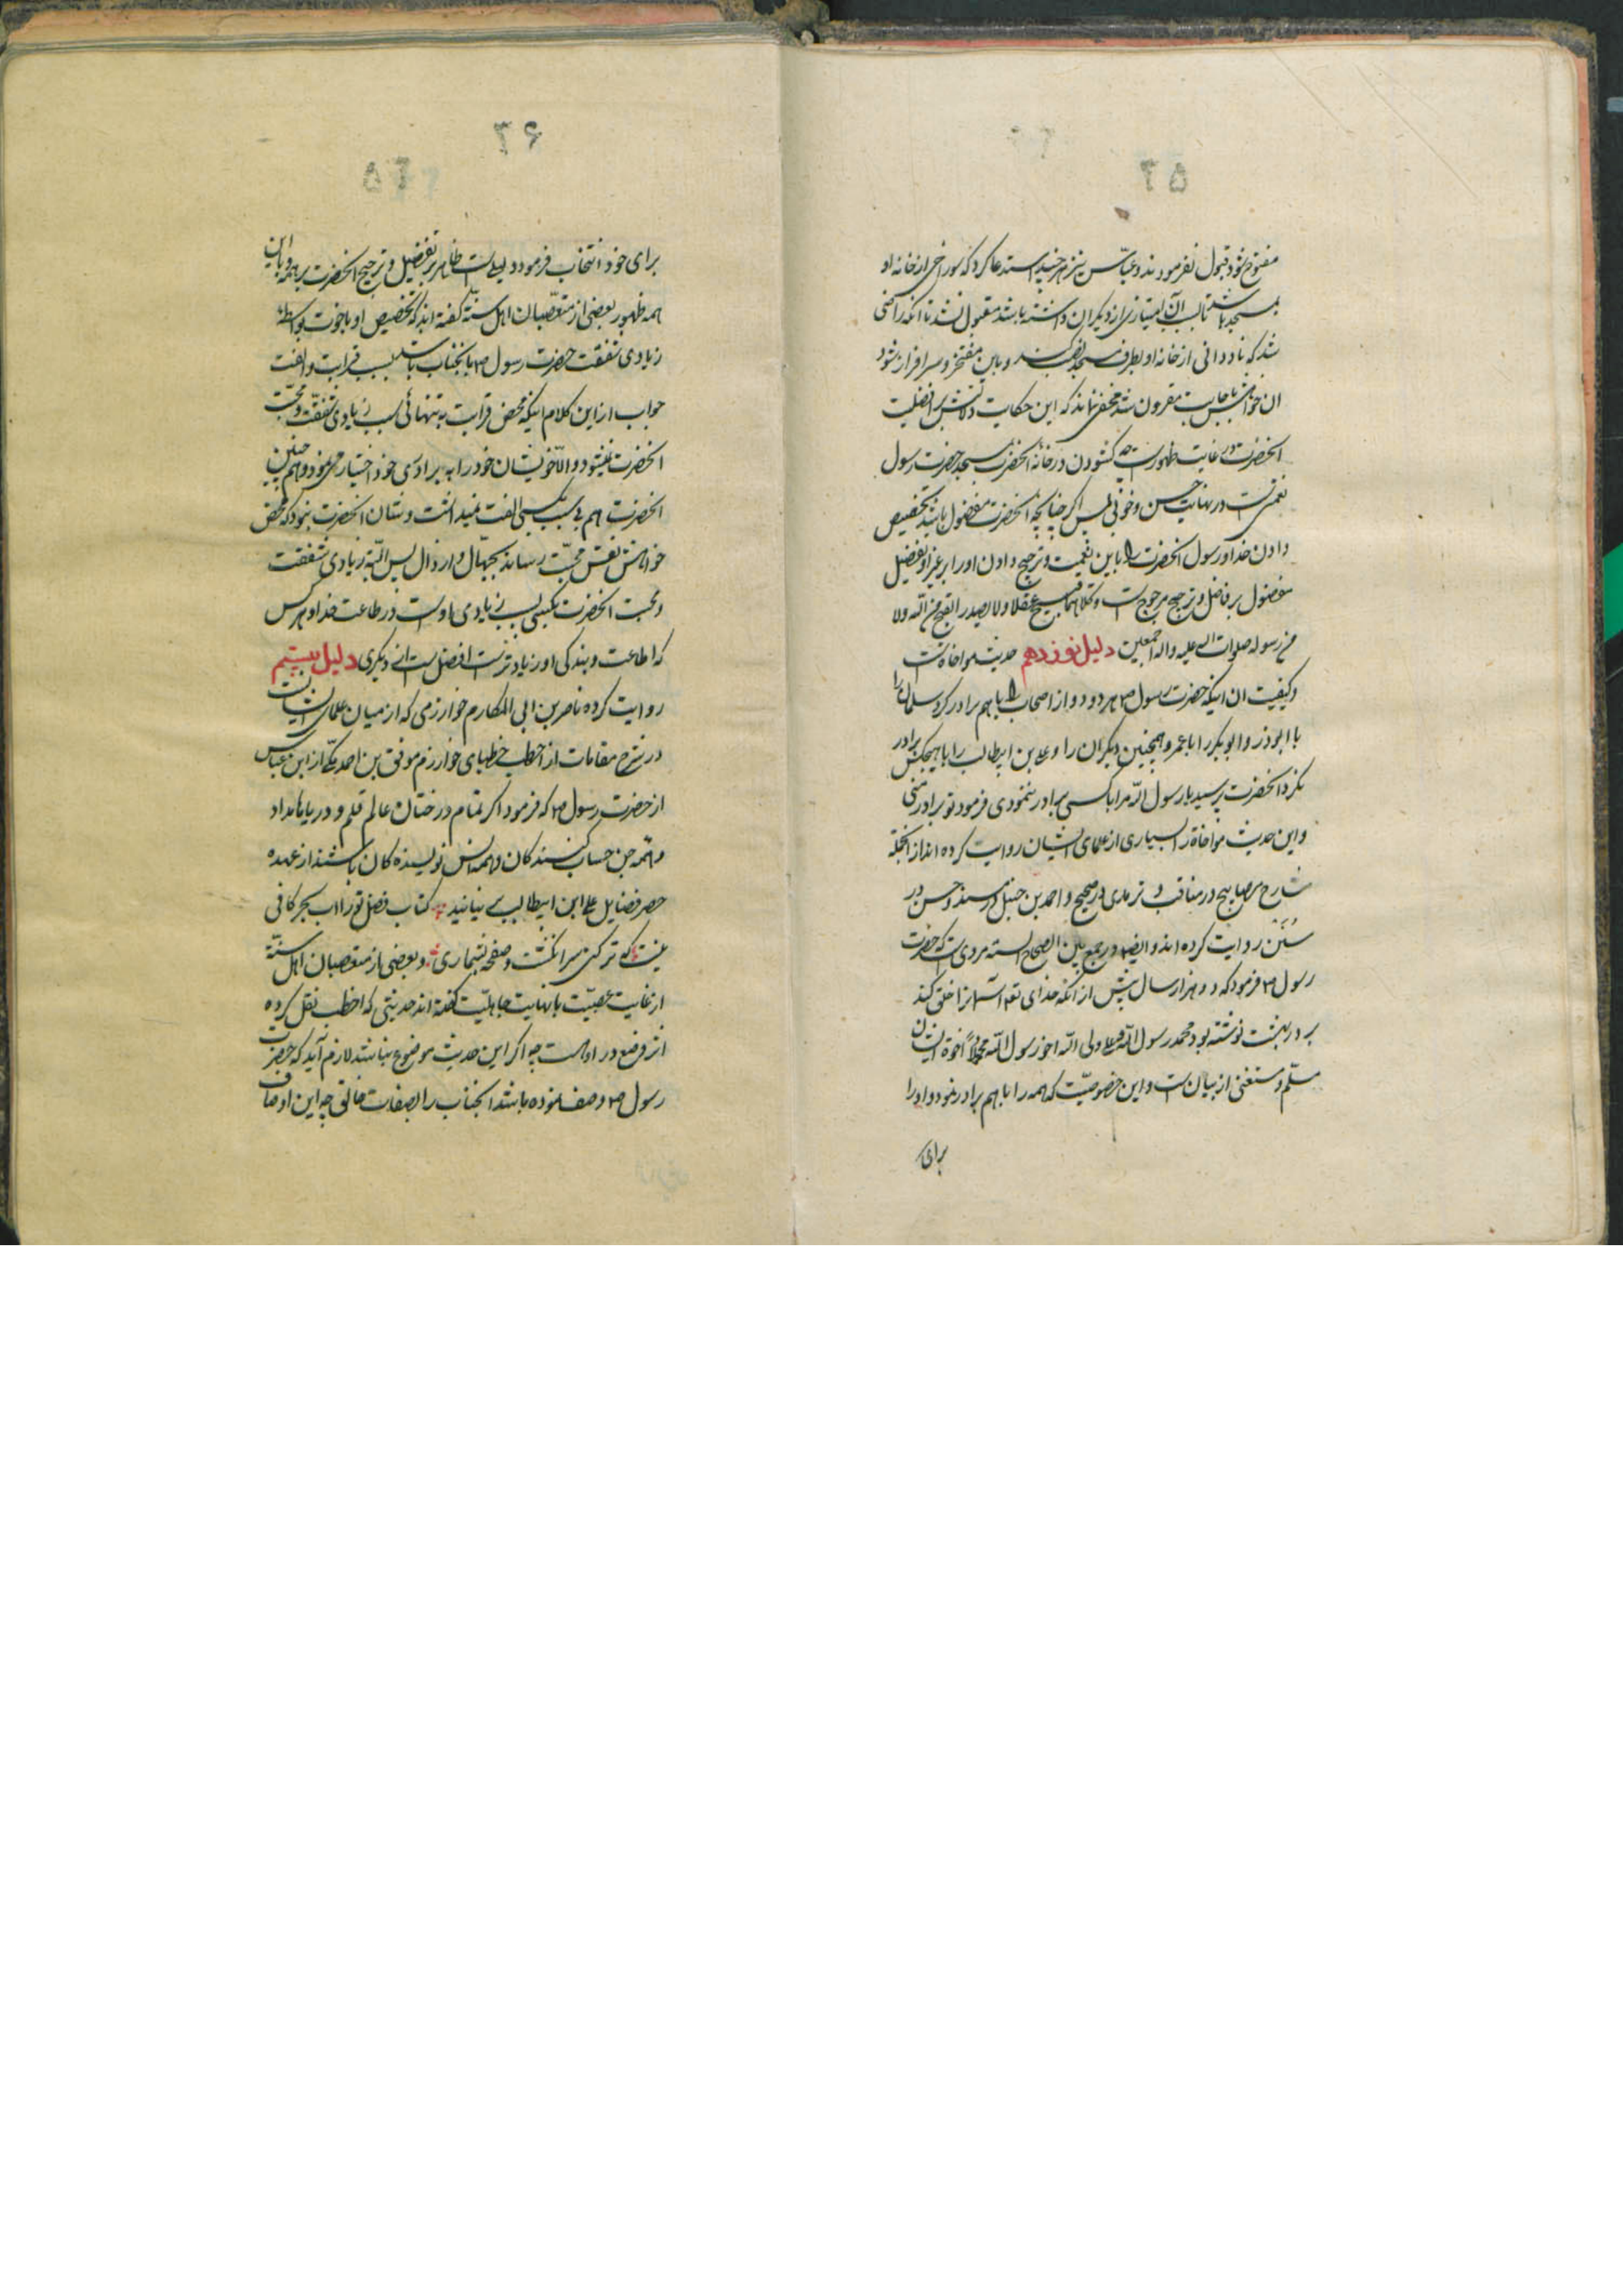 مفتوح شود قبول نفرمودند و عباس نیز هر چند استدعا کرد که سوراخی از خانه او
بمسجد باشد تا بسبب آن امتیازی از دیگران داشته باشد مقبول نشد تا آنکه راضی
شد که ناودانی از خانه او بطرف مسجد نصب کنند و باین مفتخر و سرافراز شود
ان خواهش باجابت مقرون شد مخفی نماند که این حکایت دلالتش بر افضلیت
انحضرت در غایت ظهورست چه کشودن در خانه انحضرت بمسجد حضرت رسول
نعمتی است در نهایت حسن و خوبی پس اکر چنانچه انحضرت مفضول باشد تخصیص
دادن خدا و رسول انحضرت را باین نعمت و ترجیح دادن او را بر غیر او تفضیل
مفضول بر فاضل و ترجیح مرجوح است و کلاهما قبیح عقلا و لا یصدر القبیح من الله ولا
من رسوله صلوات الله علیه و اله اجمعین دلیل نوزدهم حدیث مواخاه است
و کیفیت ان اینکه حضرت رسول ص هر دو دو از اصحاب را با هم برادر کرد سلمان را
با ابوذر و ابوبکر را با عمر و همچنین دیکران را و علی بن ابیطالب را با هیچکس برادر
نکرد انحضرت پرسید یا رسول الله مرا با کسی برادر ننمودی فرمود تو برادر منی
و این حدیث مواخاة را بسیاری از علمای ایشان روایت کرده اند از انجمله
شارح مصابیح در مناقب و ترمذی در صحیح و احمد بن حنبل در مسند و حسن در
سنن روایت کرده اند و ایضا در جمع بین الصحاح السته مرویست که حضرت
رسول ص فرمود که دو هزار سال پیش از آنکه خدای تعالی آسمانرا خلق کند
بر در بهشت نوشته بود محمد رسول الله و علی ولی الله اخو رسول الله مجملاً اخوة ایشان
مسلم و مستغنی از بیان است و این خصوصیت که همه را با هم برادر نمود و او را
برای
۲۶
برای خود انتخاب فرمود دلیلی است ظاهر بر تفضیل و ترجیح انحضرت بر همه و باین
همه ظهور بعضی از متعصبان اهل سنة کفته اند که تخصیص او باخوت بواسطه
زیادی شفقت حضرت رسول ص بانجناب باشد بسبب قرابت و الفت
جواب از این کلام اینکه محض قرابت به تنهائی سبب زیادی شفقت و محبت
انحضرت نمیشود و الا خویشان خود را به برادری خود اختیار می نمود و همچنین
انحضرت هم بی سبب بکسی الفت نمیداشت و شان انحضرت نبود که محض
خواهش نفس محبت رساند بجهال و ارذال پس البته زیادی شفقت
و محبت انحضرت بکسی بسبب زیادی اوست در طاعت خدا و هر کس
که اطاعت و بندکی او زیادتر است افضل است از دیکری دلیل بیستم
روایت کرده ناصر بن ابی المکارم خوارزمی که از میان علمای ایشانست
در شرح مقامات از اخطب خطبای خوارزم موفق بن احمد مکی از ابن عباس
از حضرت رسول ص که فرمود اکر تمام درختان عالم قلم و دریاها مداد
و همه جن حساب کنندکان و همه انس نویسنده کان باشند از عهده
حصر فضایل علی ابن ابیطالب بر نیایند کتاب فضل تو را اب بحر کافی
نیست که تر کنی سر انکشت و صفحه بشماری و بعضی از متعصبان اهل سنة
از غایت عصبیت یا نهایت جاهلیت کفته اند حدیثی که اخطب نقل کرده
اثر وضع در اوست چه اکر این حدیث موضوع نباشد لازم آید که حضرت
رسول ص وصف نموده باشد انجناب را بصفات خالق چه این اوصاف